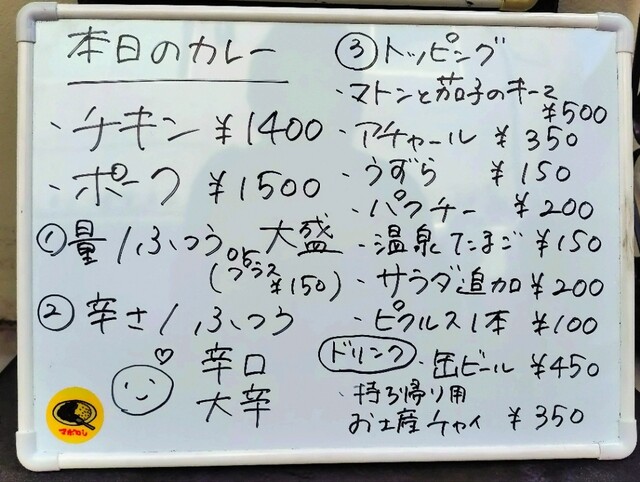 本日のカレー
・チキン ¥1400
・ポーク ¥1500
①量/ふつう or 大盛
(プラス ¥150)
②辛さ/ふつう
辛口
大辛
マボロシ
③トッピング
・マトンと茄子のキーマ
¥500
・アチャール ¥350
・うずら ¥150
・パクチー ¥200
・温泉たまご ¥150
・サラダ追加 ¥200
・ピクルス1本 ¥100
ドリンク ・缶ビール ¥450
・持ち帰り用
お土産チャイ ¥350